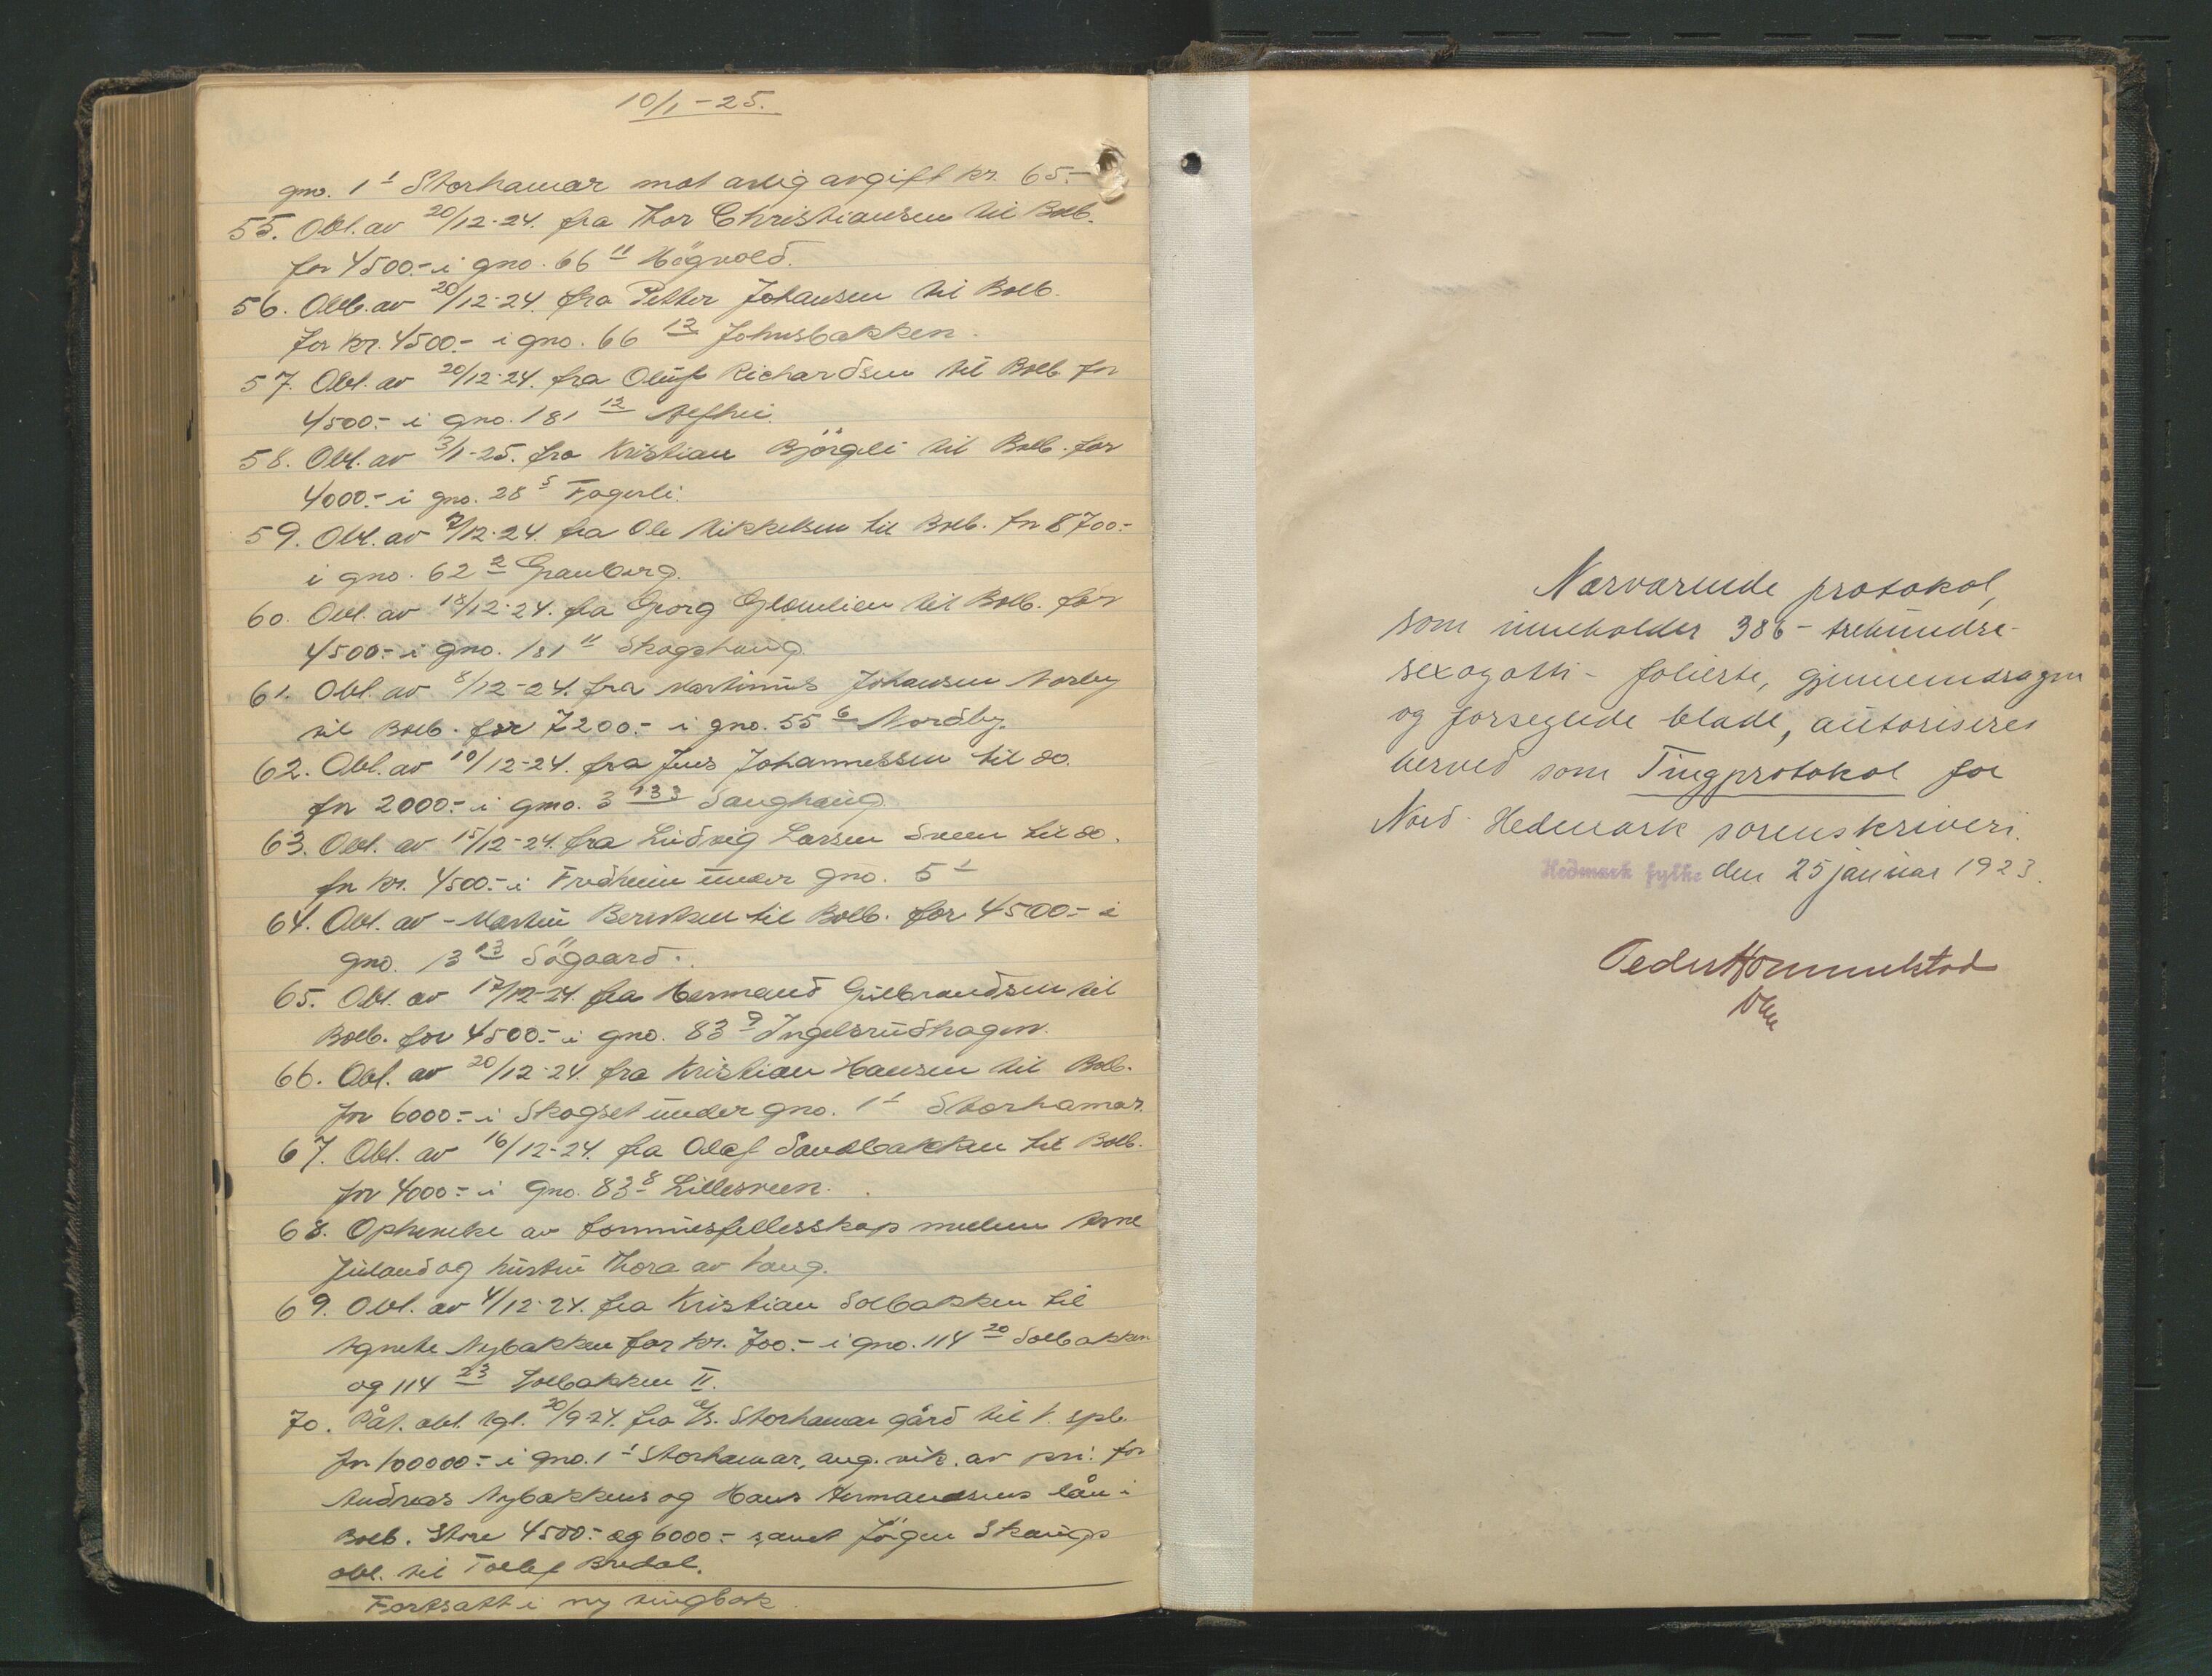 10/1-25.
gno. 1 1 Storhamar mot årlig avgift kr. 65.-
55. Obl. av 20/12-24. fra Thor Christiansen til Bolb.
for 4500.- i gno. 66 11 Högvold.
56. Obl. av 20/12-24. fra Petter Johansen til Bolb.
for kr. 4500.- i gno. 66 12 Johnsbakken.
57. Obl. av 20/12-24. fra Oluf Richardsen til Bolb. for
4500.- i gno. 181 12
58. Obl. av 3/1-25. fra Kristian Björgeli til Bolb. for
4000.- i gno. 28 5 Fagerli.
59. Obl. av /12-24. fra Ole Mikkelsen til Bolb. for 8700.-
i gno. 62 2 Granberg.
60. Obl. av 18/12-24. fra Georg Glomlien til Bolb. for
4500.- i gno. 181 11 Skogshaug.
61. Obl. av 8/12-24. fra Martinius Johansen Norby
til Bolb. for 7200.- i gno. 55 6 Nordby.
62. Obl. av 10/12-24. fra Jens Johannessen til do.
for 2000.- i gno. 3 133 Sanghaug.
63. Obl. av 15/12-24. fra Ludvig Larsen Sveen til do.
for kr. 4500.- i Fredheim under gno. 5 1
64. Obl. av - Martin Berntsen til Bolb. for 4500.- i
gno. 3 13 Sögaard.
65. Obl. av 17/12-24. fra Hermand Gulbrandsen til
Bolb. for 4500.- i gno. 83 9 Ingelsrudhagen.
66. Obl. av 20/12-24. fra Kristian Hansen til Bolb.
for 6000.- i Skogset under gno. 1 1 Storhamar.
67. Obl. av 16/12-24. fra Olaf Sandbakken til Bolb.
for 4000.- i gno. 83 8 Lillesveen.
68. Ophævelse av formuesfellesskap mellem Arne
Juland og hustru Thora av Vang.
69. Obl. av 4/12-24. fra Kristian Solbakken til
Agnete Nybakken for kr. 700.- i gno. 114 20 Solbakken
og 114 23 Solbakken II.
70. Påt. obl. tgl. 20/9-24. fra A/S. Storhamar gård til V. spb.
for 100000.- i gno. 1 1 Storhamar, ang. vik. av pri. for
Andreas Nybakkens og Hans Hermandsens lån i
Bolb. Store 4500.- og 6000.- samt Jörgen Skaugs
obl. til Tollef Bredal.
Fortsatt i ny tingbok
Nærværende protokol,
som inneholder 386 - trehundre-
sexogotti - folierte, gjennemdragne
og forseglede blade, autoriseres
herved som Tingprotokol for
Nord-Hedmark sorenskriveri.
Hedmark fylke den 25 januar 1923.